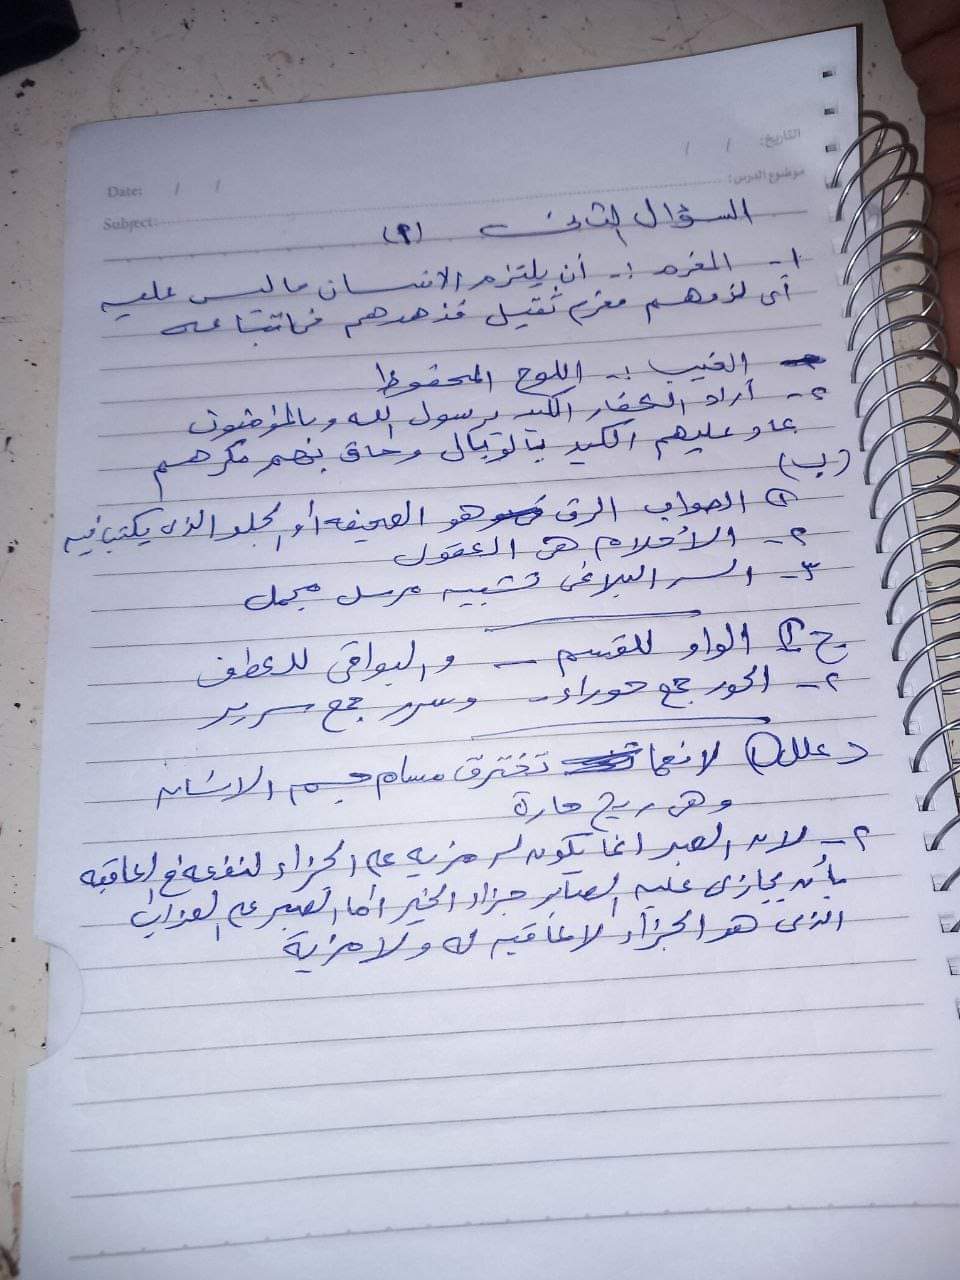 التاريخ: / /
Date: / /
موضوع الدرس:
Subject:
السؤال الثاني (٢)
١- المغرم :- أن يلتزم الانسان ما ليس عليه
أى لزمهم مغرم ثقيل فزهدهم في اتباعه
الغيب :- اللوح المحفوظ
٢- أراد الكفار الكيد برسول الله وبالمؤمنون
عاد عليهم الكيد بالوبال وحاق بهم مكرهم
(ب)
١ الصواب الرق هو الصحيفه أو الجلد الذى يكتب فيه
٢- الأحلام هى العقول
٣- السر البلاغى تشبيه مرسل مجمل
ج ١ الواو للقسم - والبواقى للعطف
٢- الحور جمع حوراء - وسرر جمع سرير
د علل ١ لانها تخترق مسام جسم الانسان
وهى ريح حارة
٢- لان الصبر انما يكون له مزيه على الجزاء لنفعه في العاقبه
بأن يجازى عليه الصابر جزاء الخير أما الصبر على العذاب
الذى هو الجزاء لا عاقبه له ولا مزية